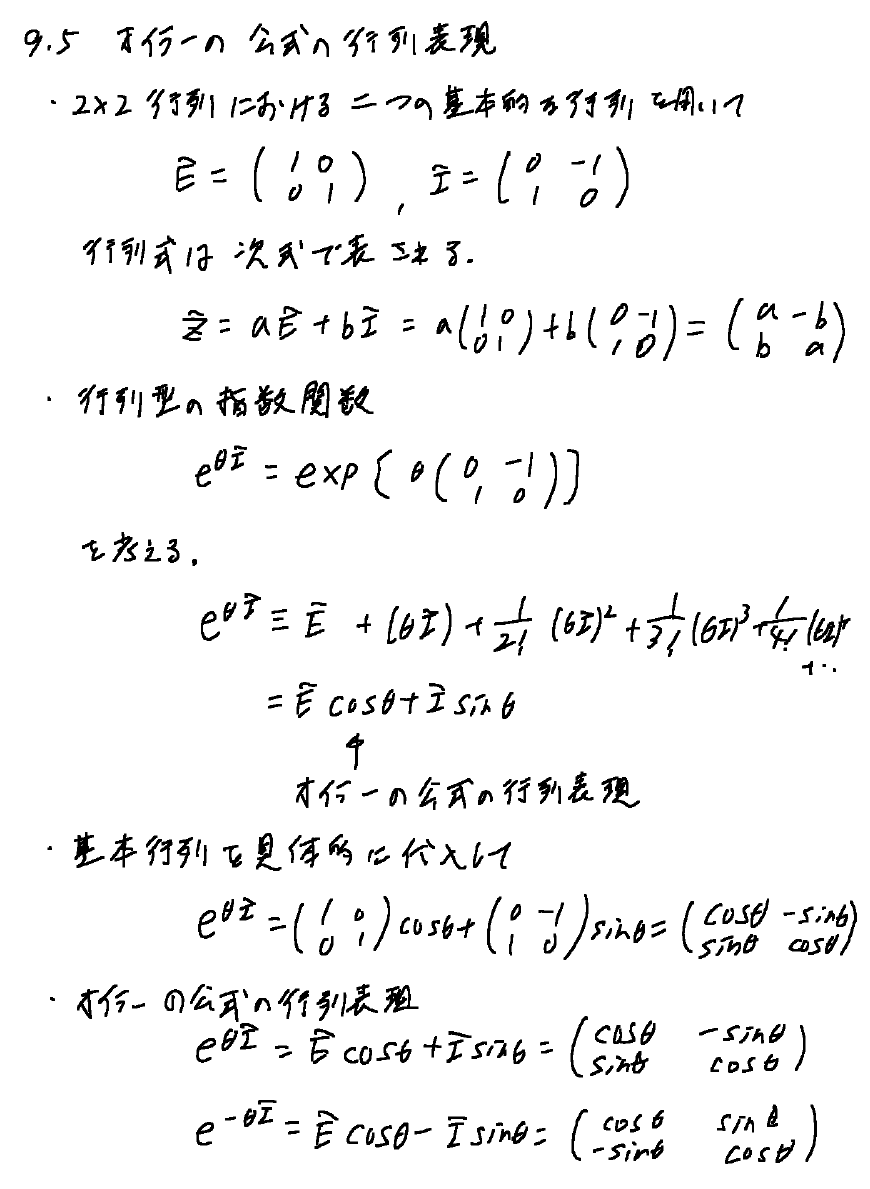 9.5 オイラーの公式の行列表現
・2×2 行列における二つの基本的な行列を用いて
Ê = (1 0 / 0 1), Î = (0 -1 / 1 0)
行列式は次式で表される.
Ẑ = aÊ + bÎ = a(1 0 / 0 1) + b(0 -1 / 1 0) = (a -b / b a)
・行列型の指数関数
e^{θÎ} = exp[θ(0 -1 / 1 0)]
を考える.
e^{θÎ} ≡ Ê + (θÎ) + 1/2! (θÎ)² + 1/3! (θÎ)³ + 1/4! (θÎ)⁴
+ ‥
= Ê cosθ + Î sinθ
↑
オイラーの公式の行列表現
・基本行列を具体的に代入して
e^{θÎ} = (1 0 / 0 1) cosθ + (0 -1 / 1 0) sinθ = (cosθ -sinθ / sinθ cosθ)
・オイラーの公式の行列表現
e^{θÎ} = Ê cosθ + Î sinθ = (cosθ -sinθ / sinθ cosθ)
e^{-θÎ} = Ê cosθ - Î sinθ = (cosθ sinθ / -sinθ cosθ)